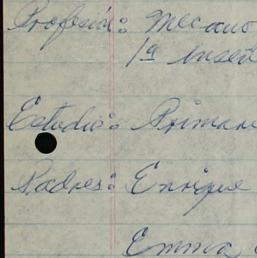 Profesió: Mecano
1a Ensen
Estudio: Primare
Padres: Enrique
Emma